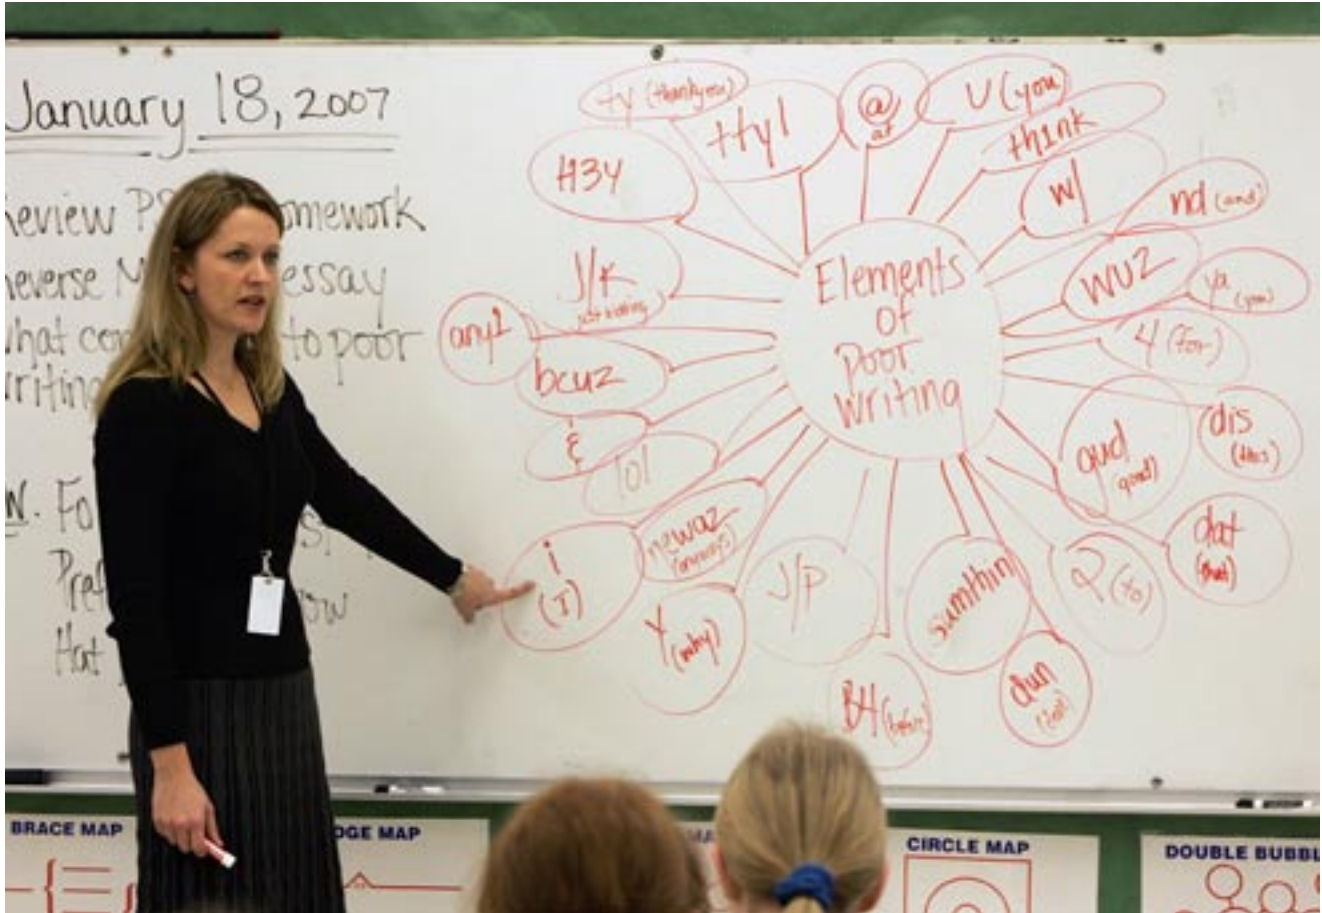 January 18, 2007
Review omework
Reverse essay
what to poor
writing
Elements
of
Poor
Writing
ty (thankyou)
ttyl
@
at
U (you
th1nk
w/
nd (and)
wuz
ya
(you)
4 (for)
dis
(this)
gud
good)
dat
(that)
2 (to)
dun
sumthin
B4 (before)
J/P
Y
(why)
newaz
(anyways)
i
(I)
lol
&
bcuz
any1
J/K
just kidding
H3Y
BRACE MAP
DGE MAP
CIRCLE MAP
DOUBLE BUBBL